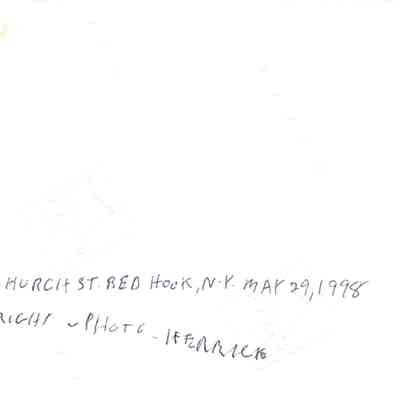 HURCH ST. RED HOOK, N.Y. MAY 29, 1998
RIGHT - PHOTO - HERRICK